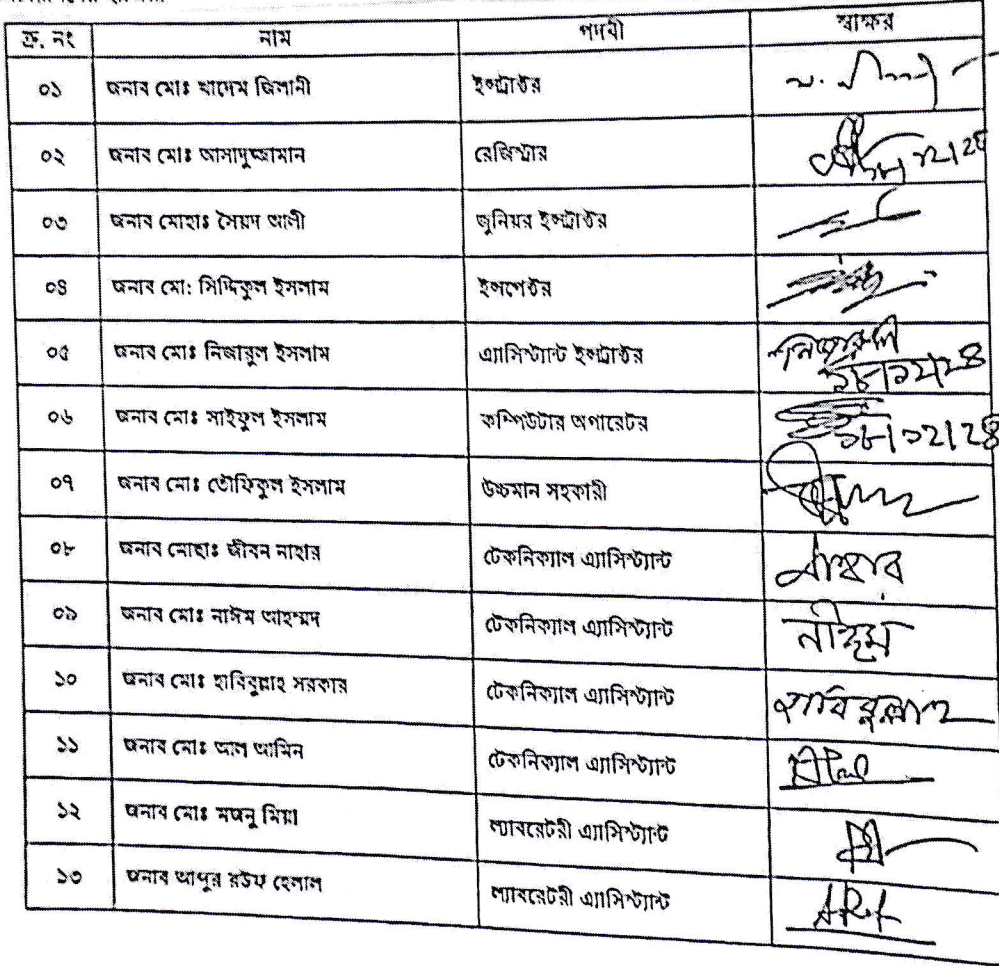 ক্র. নং নাম পদবী স্বাক্ষর
০১ জনাব মোঃ খাদেম জিলানী ইন্সট্রাক্টর
০২ জনাব মোঃ আসাদুজ্জামান রেজিস্ট্রার
০৩ জনাব মোহাঃ সৈয়দ আলী জুনিয়র ইন্সট্রাক্টর
০৪ জনাব মো: সিদ্দিকুল ইসলাম ইন্সপেক্টর
০৫ জনাব মোঃ নিজারুল ইসলাম এ্যাসিস্ট্যান্ট ইন্সট্রাক্টর
০৬ জনাব মোঃ সাইফুল ইসলাম কম্পিউটার অপারেটর
০৭ জনাব মোঃ তৌফিকুল ইসলাম উচ্চমান সহকারী
০৮ জনাব মোহাঃ জীবন নাহার টেকনিক্যাল এ্যাসিস্ট্যান্ট
০৯ জনাব মোঃ নাঈম আহম্মদ টেকনিক্যাল এ্যাসিস্ট্যান্ট নাঈম
১০ জনাব মোঃ হাবিবুল্লাহ সরকার টেকনিক্যাল এ্যাসিস্ট্যান্ট হাবিবুল্লাহ
১১ জনাব মোঃ আল আমিন টেকনিক্যাল এ্যাসিস্ট্যান্ট
১২ জনাব মোঃ মজনু মিয়া ল্যাবরেটরী এ্যাসিস্ট্যান্ট
১৩ জনাব আব্দুর রউফ হেলাল ল্যাবরেটরী এ্যাসিস্ট্যান্ট